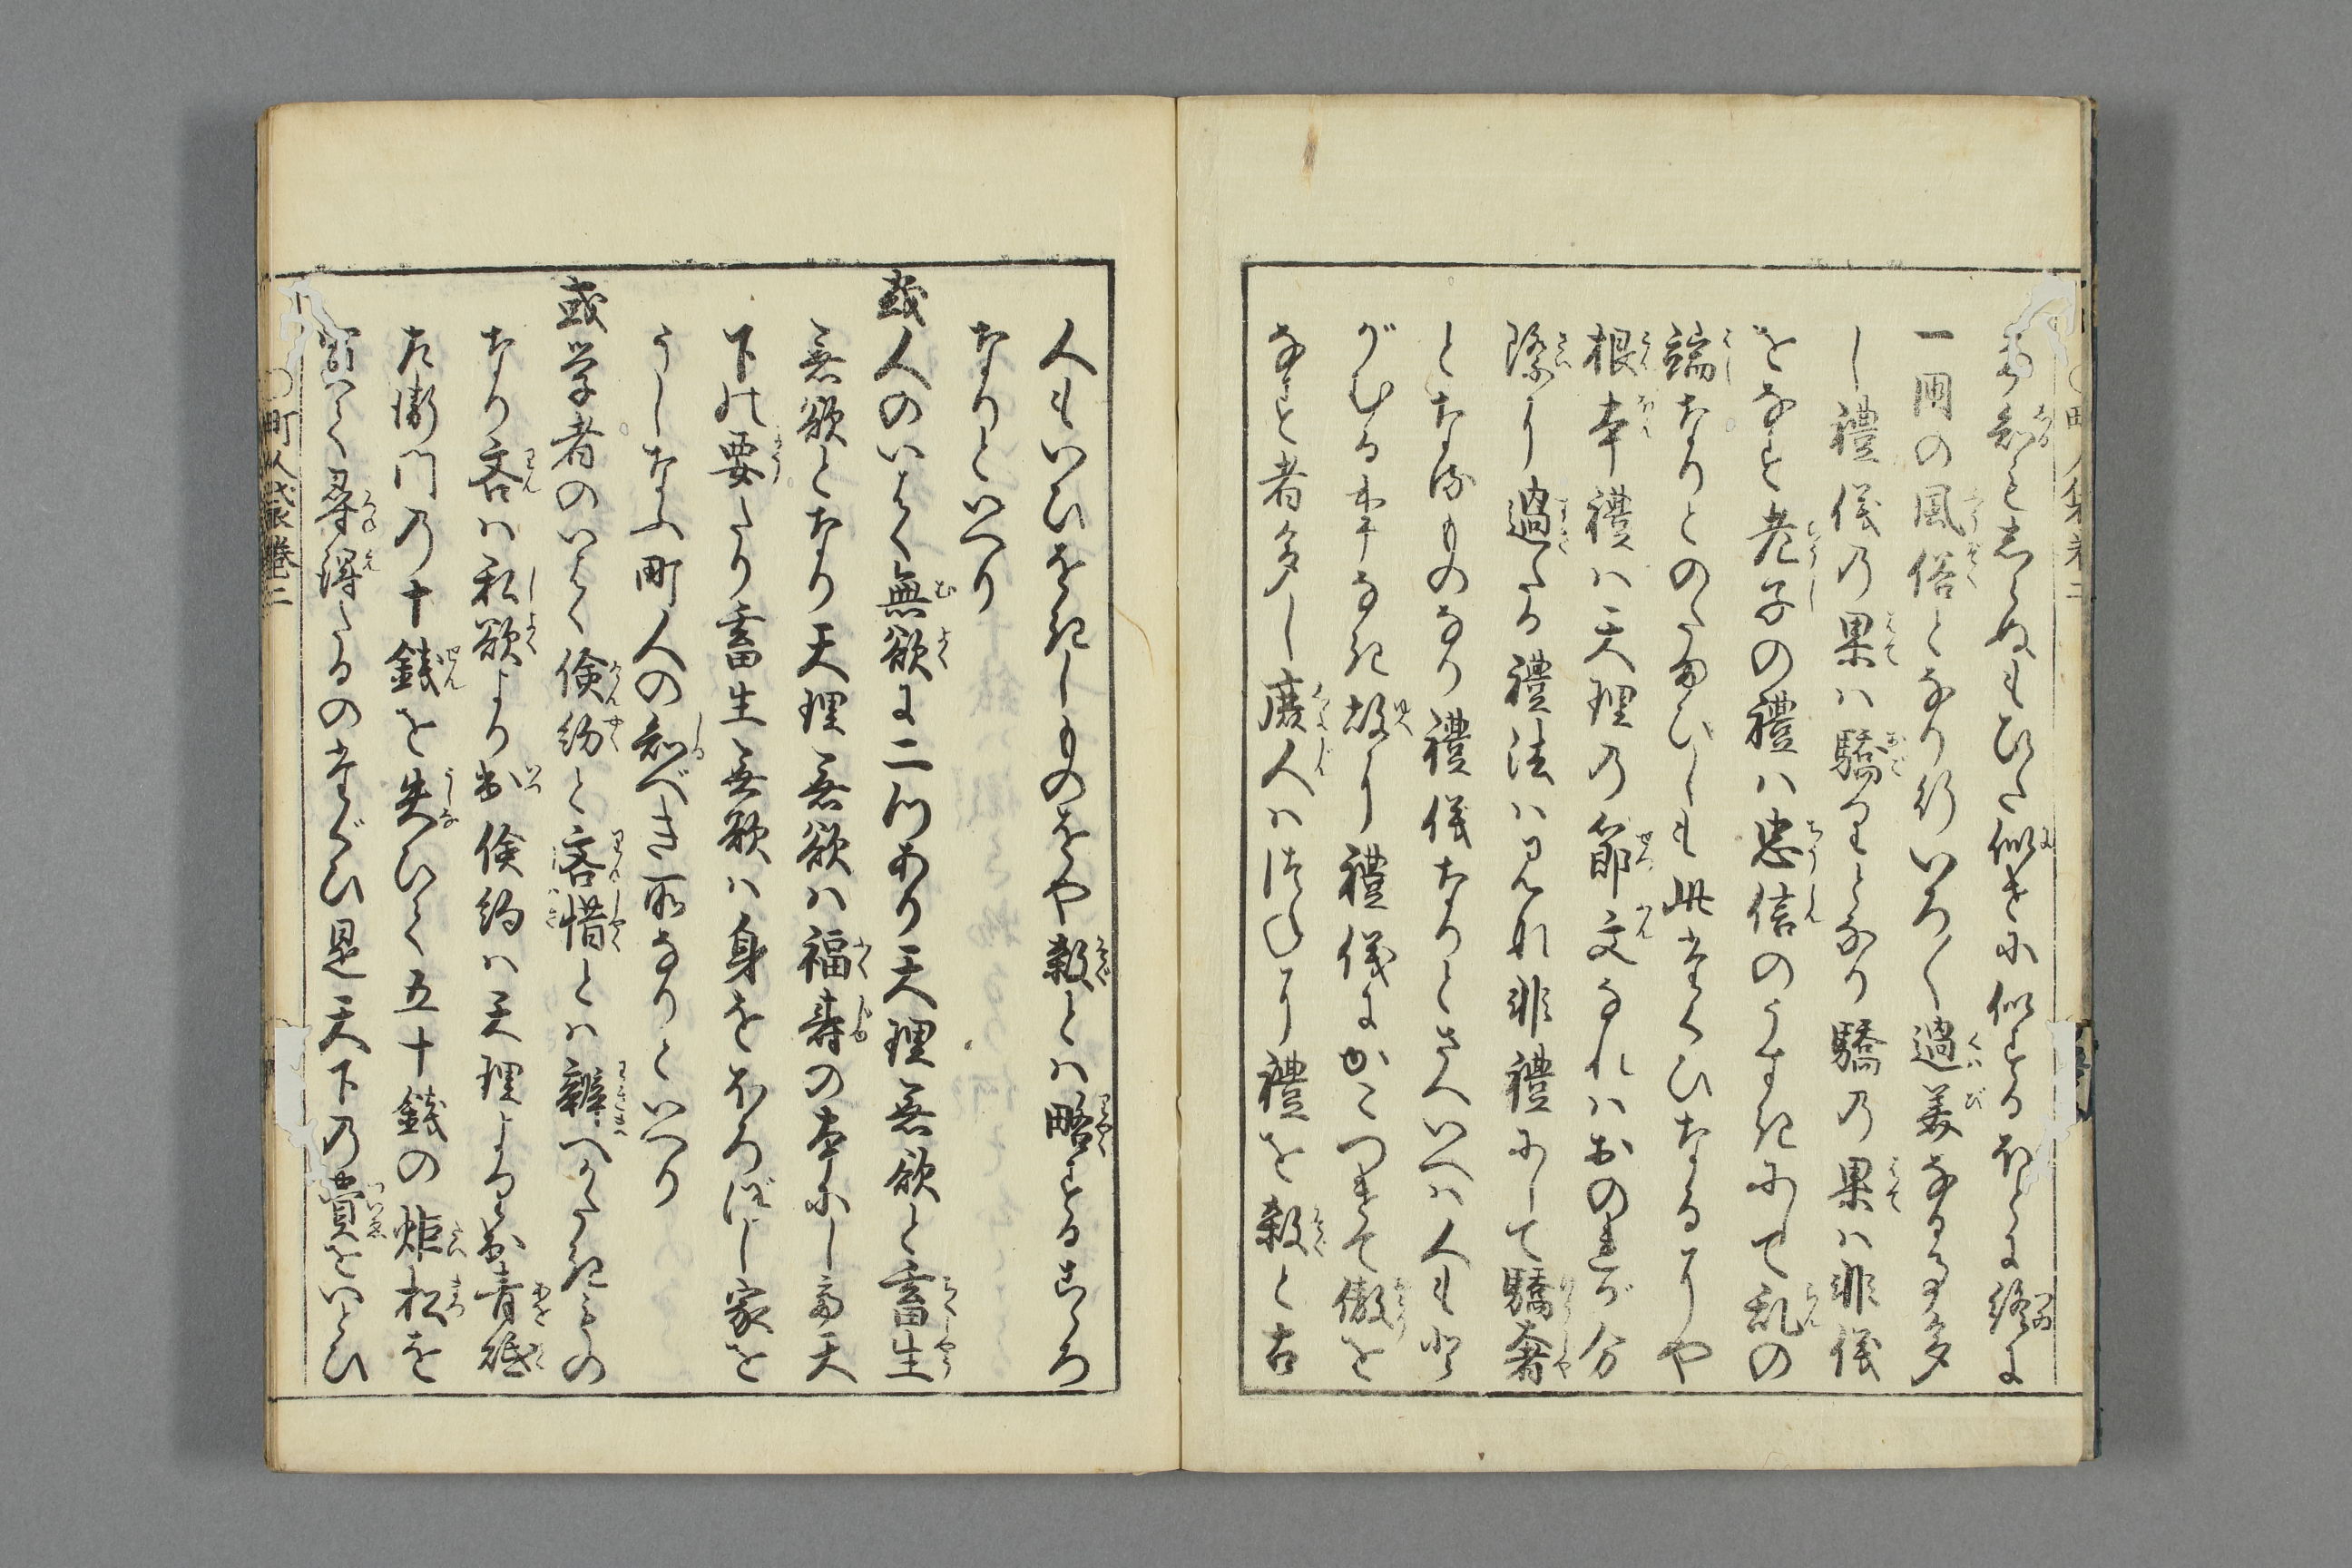 知もしらぬもひた似せに似するほとに終に
一同の風俗となり行いろ〳〵過美なる事多
し禮儀の果は驕りとなり驕の果は非儀
をなす老子の禮は忠信のうすきにして乱の
端なりとのたまひしも此たくひなるにや
根本禮は天理の節文なれはおのれが分
際に過たる禮法は又是非禮にして驕奢
となすものなり禮儀なりとさへいへは人もと
がむる事なき故に禮儀にかこつけて傲を
なす者多し廉人はつねに禮を殺と古
人もいひをきしものをや殺とは略するこゝろ
なりといへり
或人のいはく無欲に二つあり天理無欲と畜生
無欲となり天理無欲は福寿の本にして天
下の要たり畜生無欲は身をほろぼし家を
うしなふ町人の知べき所なりといへり
或学者のいはく倹約と吝惜とは辨へかたきもの
なり吝は私欲より出倹約は天理より出青砥
左衛門の十銭を失ひて五十銭の炬松を
買いて尋得たるのたぐひ是天下の費をいとひ
町人袋巻二